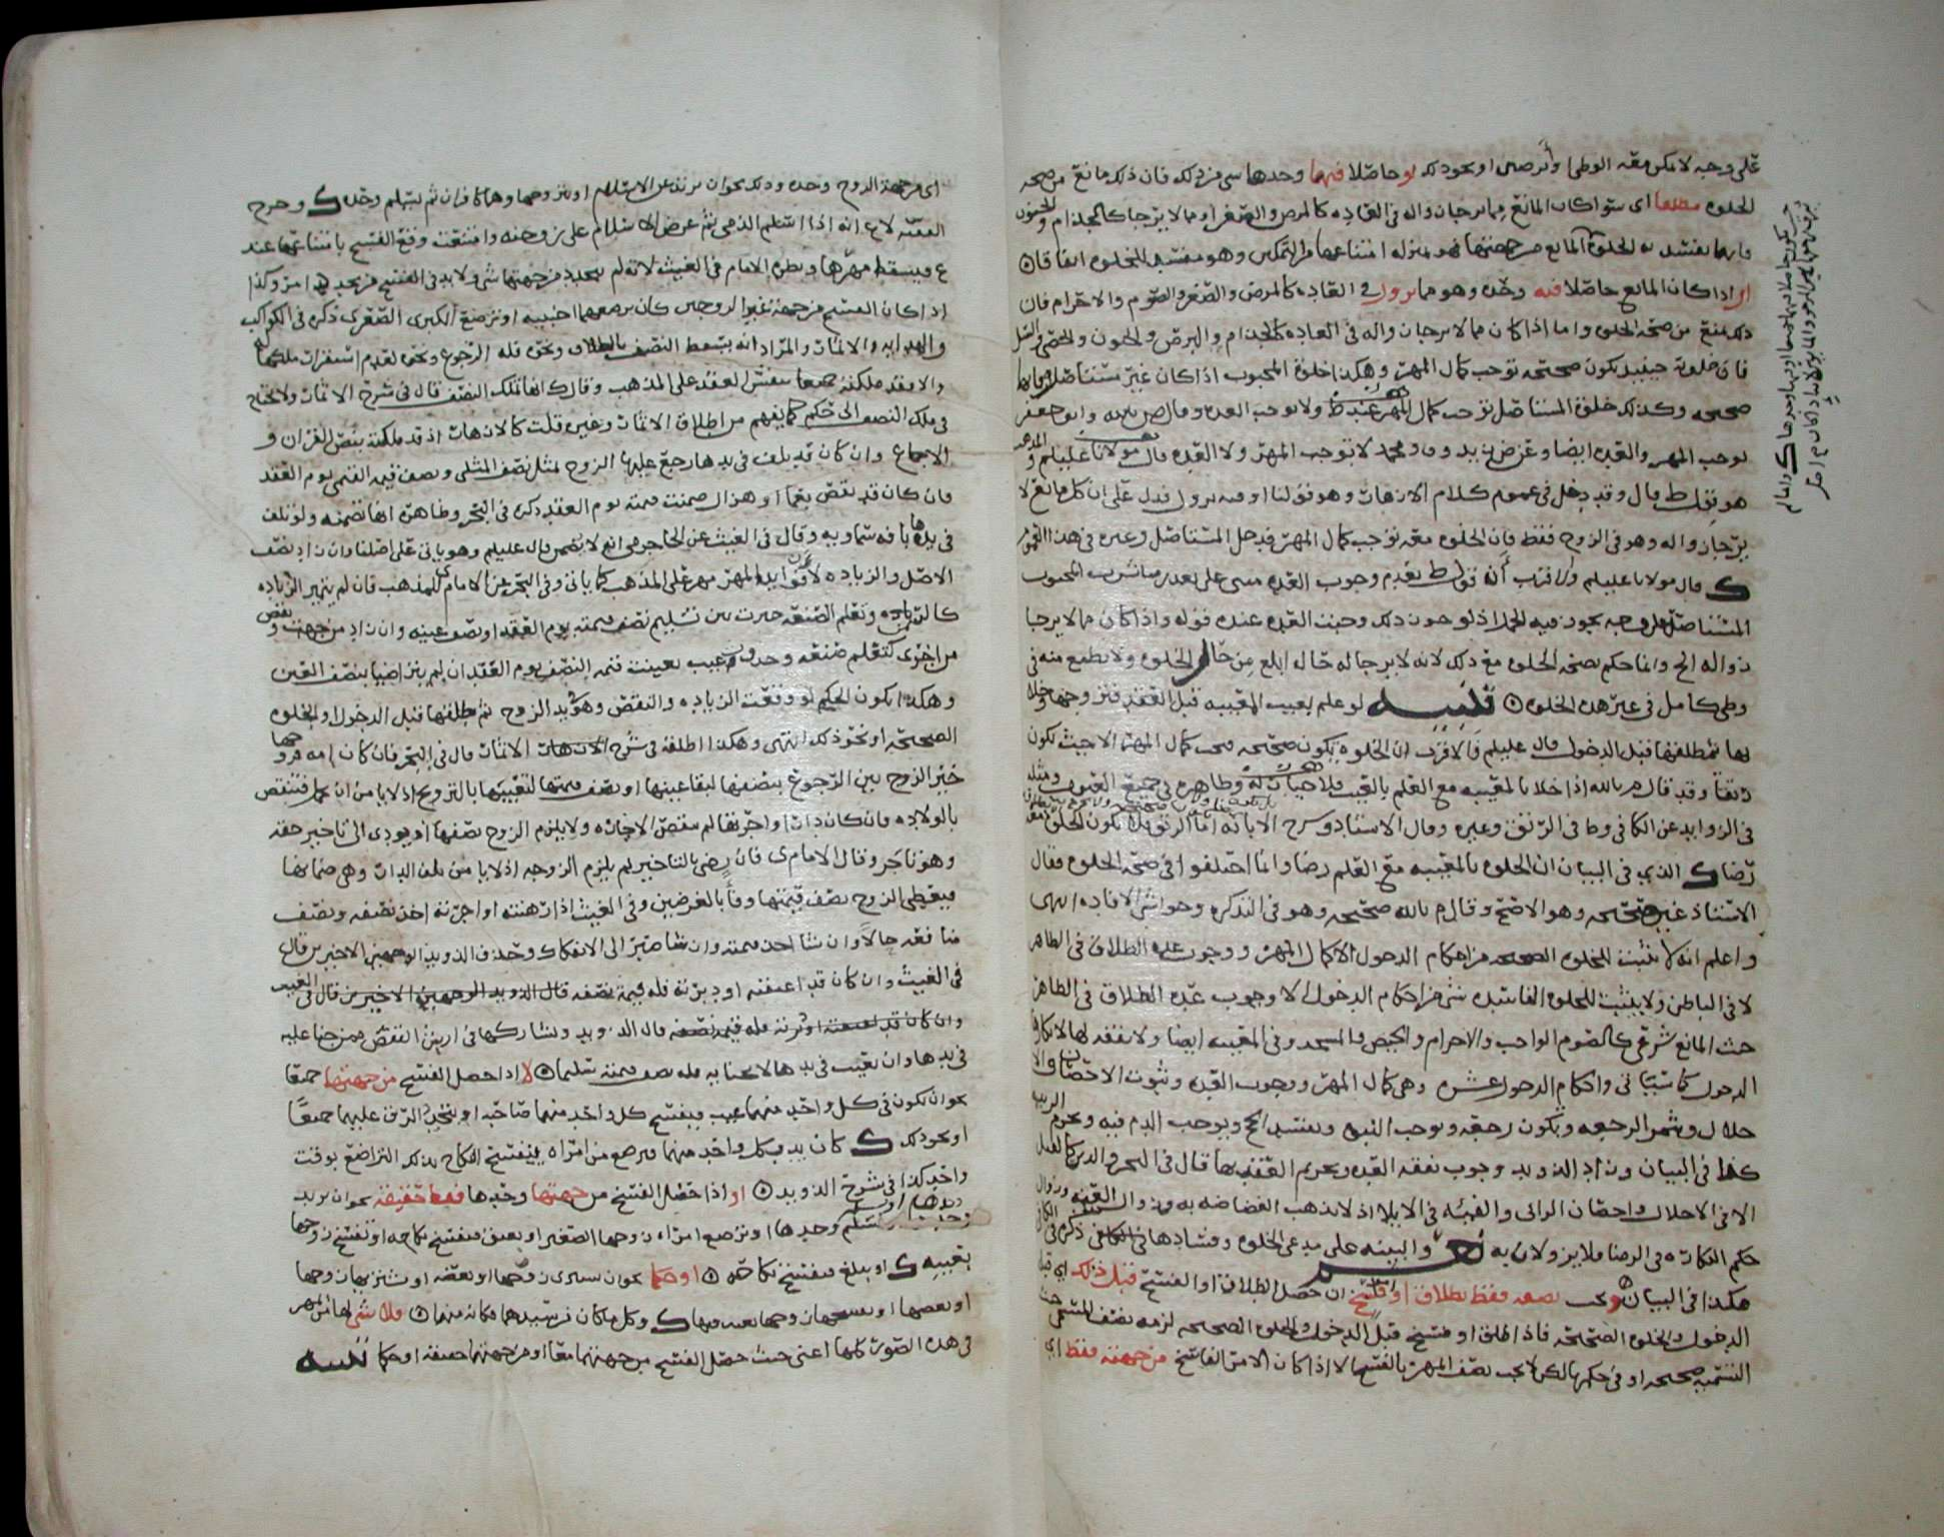 على وجه لا يمكن معه الوطئ وأبرصين او نحو ذلك لو حاصلا فيهما وحدها سي من ذلك فان ذلك مانع من صحه
الخلوه مطلقا اى سوا كان المانع مما يرجا زواله فى العاده كالمرض والصغر او مما لا يرجا كالجذام والجنون
فايهما تفسد به الخلوه المانع من جهتها فهو بمنزله امتناعها من التمكين وهو مفسد للخلوه اتفاقا
او اذا كان المانع حاصلا فيه وحده وهو مما يزول فى العاده كالمرض والصغر والصوم والاحرام فان
ذلك يمنع من صحه الخلوه واما اذا كان مما لا يرجا زواله فى العاده كالجذام والبرص والجنون والخصي والسل
فان خلوته حينيذ تكون صحيحه توجب كمال المهر وهكذا خلوة المجبوب اذا كان غير مستاصل فانها
صحيحه وكذلك خلوة المستاصل توجب كمال المهر عند ط ولا توجب العده وقال ص بالله وابو جعفر
توجب المهر والعده ايضا وعن زيد و ومحمد لا توجب المهر ولا العده قال مولانا عليلم و
هو قول ط قال وقد دخل فى عموم كلام الازهار وهو قولنا او فيه يزول فدل على ان كل مانع لا
يرجا زواله وهو فى الزوج فقط فان الخلوه معه توجب كمال المهر فدخل المستاصل وغيره فى هذا العموم
قال مولانا عليلم والاقرب أن قول ط بعدم وجوب العده مبنى على تعذر مباشرت المجبوب
المستاصل على وجه يجوز فيه الحمل اذ لو جوز ذلك وجبت العده عنده قوله واذا كان مما لا يرجا
زواله الخ وانما حكم بصحة الخلوه مع ذلك لانه لا يرجا له حال ابلغ من حال الخلوه ولا يطمع منه فى
وطي كامل فى غير هذه الخلوه تنبيه لو علم بعيب المعيبه قبل العقد فتزوجها وخلا
بها ثم طلقها قبل الدخول قال عليلم فالاقرب ان الخلوه تكون صحيحه فيجب كمال المهر الا حيث تكون
رتقا وقد قال م بالله اذا خلا بالمعيبه مع العلم بالعيب فلا خيار له وظاهره فى جميع العيوب ومثله
فى الزوايد عن الكافى وط فى الرتق وغيره وقال الاستاذ وشرح الابانه اما الرتق فلا تكون الخلوه
رضا الذي فى البيان ان الخلوه بالمعيبه مع العلم رضا وانما اختلفوا فى صحة الخلوه فقال
الاستاذ غير صحيحه وهو الاصح وقال م بالله صحيحه وهو فى التذكره وحواشى الافاده انتهى
واعلم انه لا يثبت للخلوه الصحيحه من احكام الدخول الا كمال المهر ووجوب عده الطلاق فى الظاهر
لا فى الباطن ولا يثبت للخلوه الفاسده شى من احكام الدخول الا وجوب عده الطلاق فى الظاهر
حيث المانع شرعى كالصوم الواجب والاحرام والحيض والمسجد وفى المعيبه ايضا ولا نفقه لها
الدخول كما سياتى واحكام الدخول عشره وهى كمال المهر ووجوب العده وثبوت الاحصان
حلال ويثمر الرجعه ويكون رجعه ويوجب النسب ويفسد الحج ويوجب الدم فيه وتحريم الربيبه
كذا فى البيان وزاد الذويد وجوب نفقه العده وتحريم العقد بها قال فى البحر والدبر كالقبل
الا فى الاحلال واحصان الزانى والفيئه فى الايلا اذ لا تذهب الغضاضه به وزوال العنه وزوال
حكم البكاره فى الرضا والبينه على مدعى الخلوه وفسادها ذكره فى
هكذا فى البيان ويجب نصفه فقط بطلاق او فسخ ان حصل الطلاق او الفسخ قبل ذلك اي قبل
الدخول والخلوه الصحيحه فاذا طلق او فسخ قبل الدخول والخلوه الصحيحه لزمه نصف المسمى حيث
التسميه صحيحه او فى حكمها لكن لا يجب نصف المهر بالفسخ الا اذا كان الامر الفاسخ من جهته فقط اي
اى من جهة الزوج وحده وذلك نحو ان يرتد عن الاسلام او يتزوجها وهما كافران ثم يسلم وحده وخرج
الفقيه لاع انه اذا اسلم الذمى ثم عرض الاسلام على زوجته وامتنعت وقع الفسخ بامتناعها عند
ع فيسقط مهرها ونظره الامام فى الغيث لانه لم يتجدد من جهتها شى ولا بد فى الفسخ من تجدد امر وكذا
اذا كان الفسخ من جهة غير الزوجين كان ترضعهما اجنبيه او ترضع الكبرى الصغرى ذكره فى الكواكب
والهدايه والاثمار والمراد انه يسقط النصف بالطلاق ونحوه فله الرجوع ونحوه لعدم استقرار ملكها
والا فقد ملكته جميعا بنفس العقد على المذهب وقال ك انها تملك النصف قال فى شرح الاثمار ولا تحتاج
فى ملك النصف الى حكم كما يفهم من اطلاق الاثمار وغيره قلت كالازهار اذ قد ملكته بنص القران و
الاجماع وان كان قد تلف فى يدها رجع عليها الزوج بمثل نصف المثلى ونصف قيمه القيمى يوم العقد
فان كان قد نقص بعمى او هزال ضمنت قيمته يوم العقد ذكره فى البحر وظاهره انها تضمنه ولو تلف
فى يدها بافه سماويه وقال فى الغيث عن الحاجرمى انه لا يضمن قال عليلم وهو يانى على اصلنا وان زاد نصف
الاصل والزياده لأن فوايد المهر مهر على المذهب كما ياتى وفى البحر عن الامام ى للمذهب فان لم يتميز الزياده
كالسمن وتعلم الصنعه خيرت بين تسليم نصف قيمته يوم العقد او نصف عينه وان زاد من جهه ونقص
من اخرى كتعلم صنعه وحدوث عيب تعينت قيمه النصف يوم العقد ان لم يتراضيا بنصف العين
وهكذا يكون الحكم لو وقعت الزياده والنقص وهو بيد الزوج ثم طلقها قبل الدخول او الخلوه
الصحيحه او نحو ذلك انتهى وهكذا اطلقه فى شرح الاثمار قال فى البحر فان كان امه فزوجها
خير الزوج بين الرجوع بنصفها لبقا عينها او نصف قيمتها لتعييبها بالتزويج اذ لا يامن ان تحمل فتنقص
بالولاده فان كان دارا واجرتها لم تنقص الاجاره ولا يلزم الزوج نصفها اذ يودى الى تاخير حقه
وهو ناجز وقال الامام ى فان رضى بالتاخير لم يلزم الزوجه اذ لا يامن تلف الدار وهى ضمانها
فيعطى الزوج نصف قيمتها وفا بالغرضين وفى الغيث اذا رهنته او اجرته اخذ نصفه ونصف
منافعه حالا وان شا اخذ قيمته وان شا صبر الى الانفكاك وحذف الذويد الوجهين الاخيرين قال
فى الغيث وان كان قد اعتقته او دبرته فله قيمة نصفه قال الذويد
قال الذويد وتشاركها فى ارش النقص ممن جنا عليه
فى يدها وان تعيب فى يدها لا بجنايه فله نصف قيمته سليما لا اذا حصل الفسخ من جهتهما جميعا
نحو ان يكون فى كل واحد منهما عيب فيفسخ كل واحد منهما صاحبه او يتجدد الرق عليهما جميعا
او نحو ذلك كان يدب كل واحد منهما فيرضع من امراه فينفسخ النكاح بذلك التراضع بوقت
واحد كذا فى شرح الذويد او اذا حصل الفسخ من جهتها وحدها فقط حقيقة نحو ان ترتد
وحدها او تسلم وحدها او ترضع امراه زوجها الصغير او تعتق فتفسخ نكاحه او تفسخ زوجها
بعيبه او تبلغ فتفسخ نكاحه او حكما نحو ان تشترى زوجها او بعضه او يشتريها زوجها
او بعضها وكل ما كان من سيدها فكانه منها فلا شى لها من المهر
فى هذه الصور كلها اعنى حيث حصل الفسخ من جهتهما معا او من جهتها حقيقه او حكما تنبيه